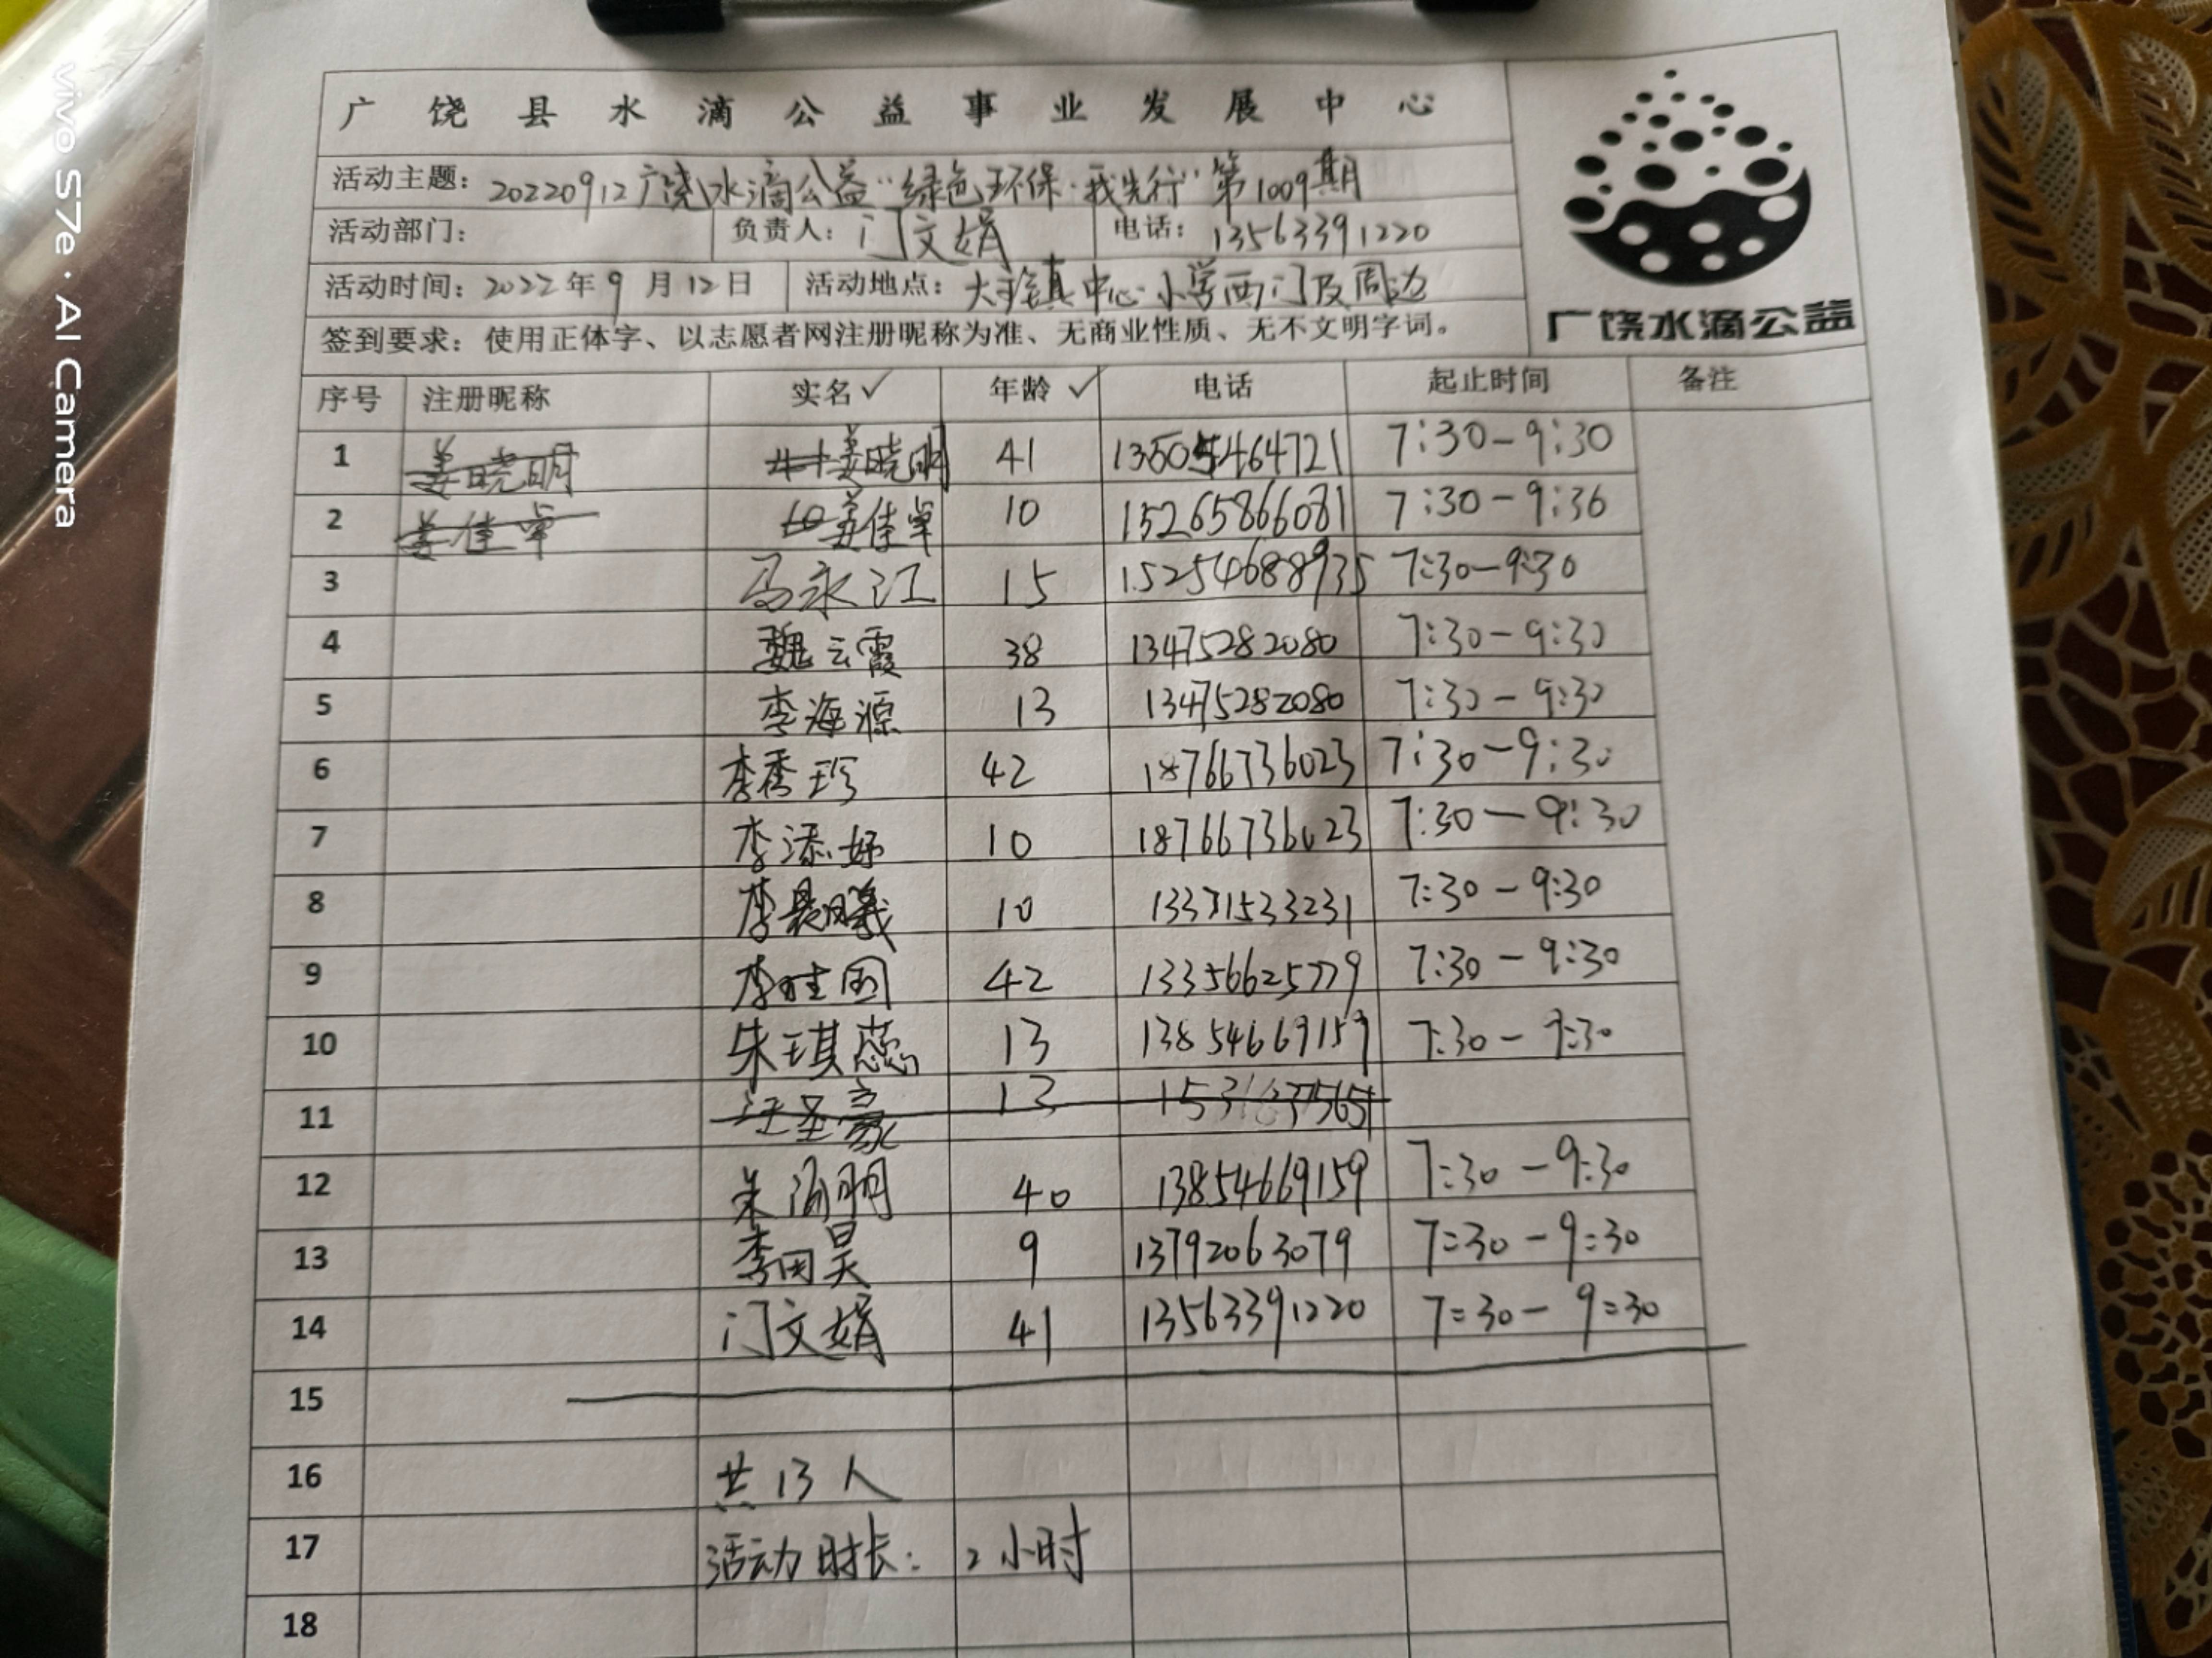 广饶县水滴公益事业发展中心
活动主题：20220912广饶水滴公益"绿色环保·我先行"第1009期
活动部门： 负责人：门文娟 电话：13563391220
活动时间：2022年9月12日 活动地点：大王镇中心小学西门及周边
签到要求：使用正体字、以志愿者网注册昵称为准、无商业性质、无不文明字词。
广饶水滴公益
序号 注册昵称 实名✓ 年龄✓ 电话 起止时间 备注
1 姜晓明 姜晓明 41 13505464721 7:30-9:30
2 姜佳卓 姜佳卓 10 15265866081 7:30-9:30
3 马永江 15 15254688935 7:30-9:30
4 魏云霞 38 13475282080 7:30-9:30
5 李海源 13 13475282080 7:30-9:30
6 李秀珍 42 18766736023 7:30-9:30
7 李添妤 10 18766736023 7:30-9:30
8 李晨曦 10 13371533231 7:30-9:30
9 李国 42 13356625779 7:30-9:30
10 朱琪蕊 13 13854669159 7:30-9:30
11 汪圣豪 13
12 朱明 40 13854669159 7:30-9:30
13 李昊 9 13792063079 7:30-9:30
14 门文娟 41 13563391220 7:30-9:30
15
16 共13人
17 活动时长：2小时
18
vivo S7e · AI Camera